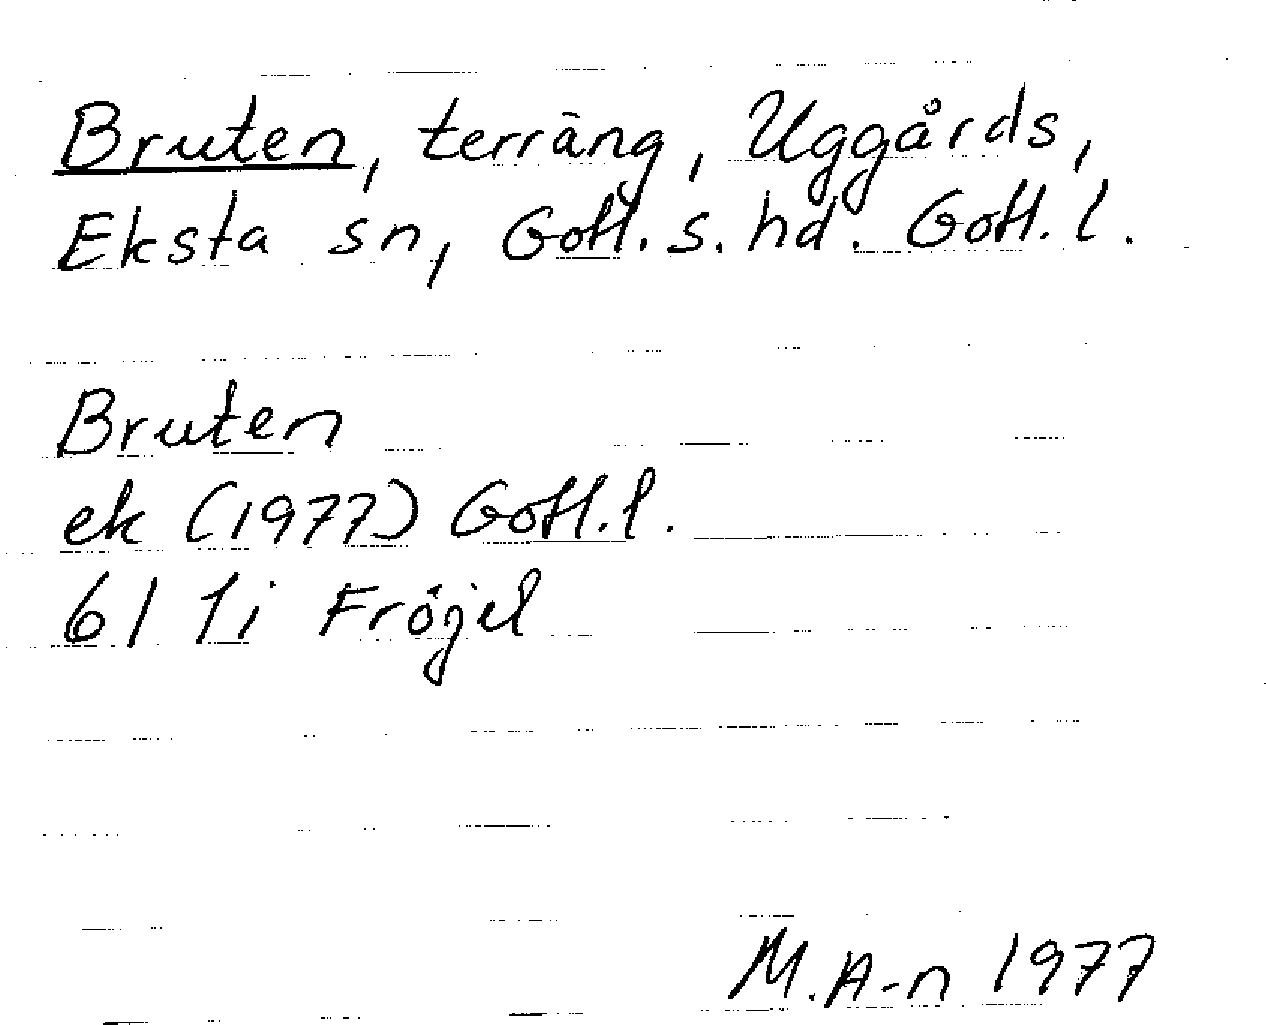 Bruten, terräng, Uggårds,
Eksta sn, Gotl. s. hd. Gotl. l.
Bruten
ek (1977) Gotl. l.
6I 1i Fröjel
M. A-n 1977